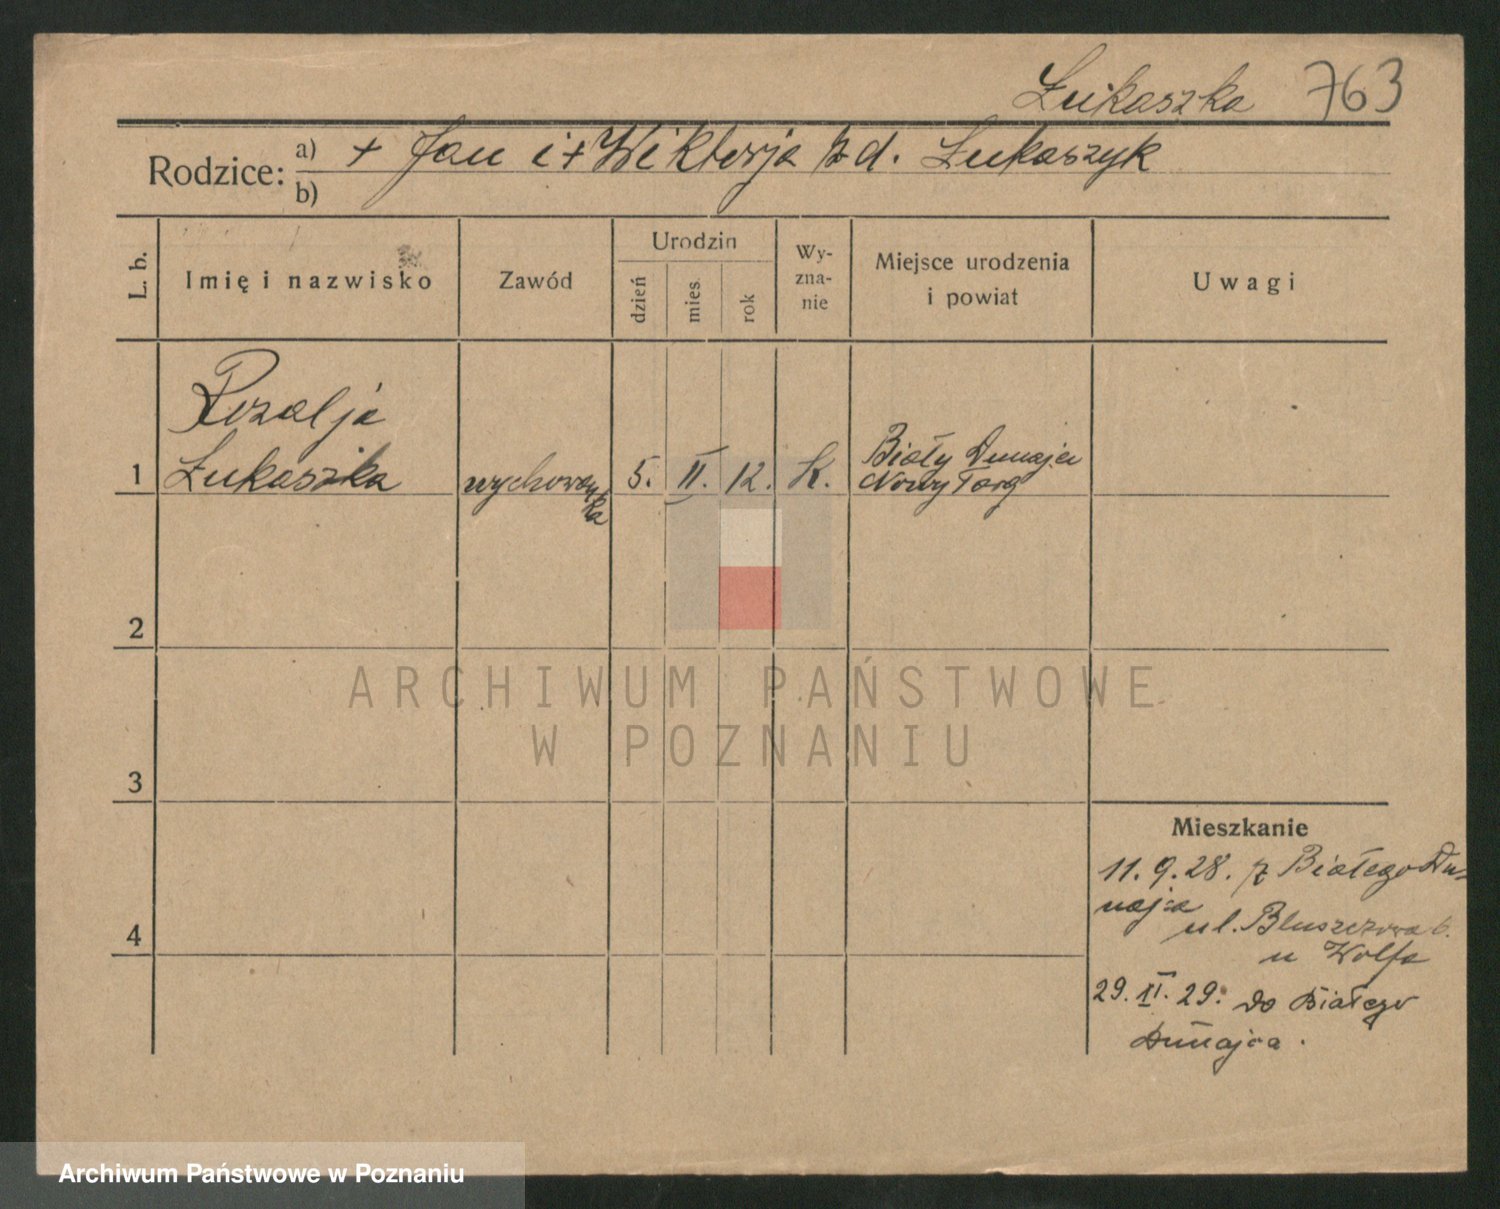 Łukaszka 763
Rodzice: a) + Jan i + Wiktorja z d. Łukaszyk
b)
L. b.
Imię i nazwisko
Zawód
Urodzin
dzień
mies.
rok
Wy-
zna-
nie
Miejsce urodzenia
i powiat
Uwagi
Rozalja
1 Łukaszka wychowan 5. II. 12. K. Biały Dunajec
ka Nowy Targ
2
3
4
ARCHIWUM PAŃSTWOWE
W POZNANIU
Mieszkanie
11. 9. 28. z Białego Du-
najca
ul. Bluszczowa 6.
u Wolfa
29. II. 29. do Białego
Dunajca.
Archiwum Państwowe w Poznaniu